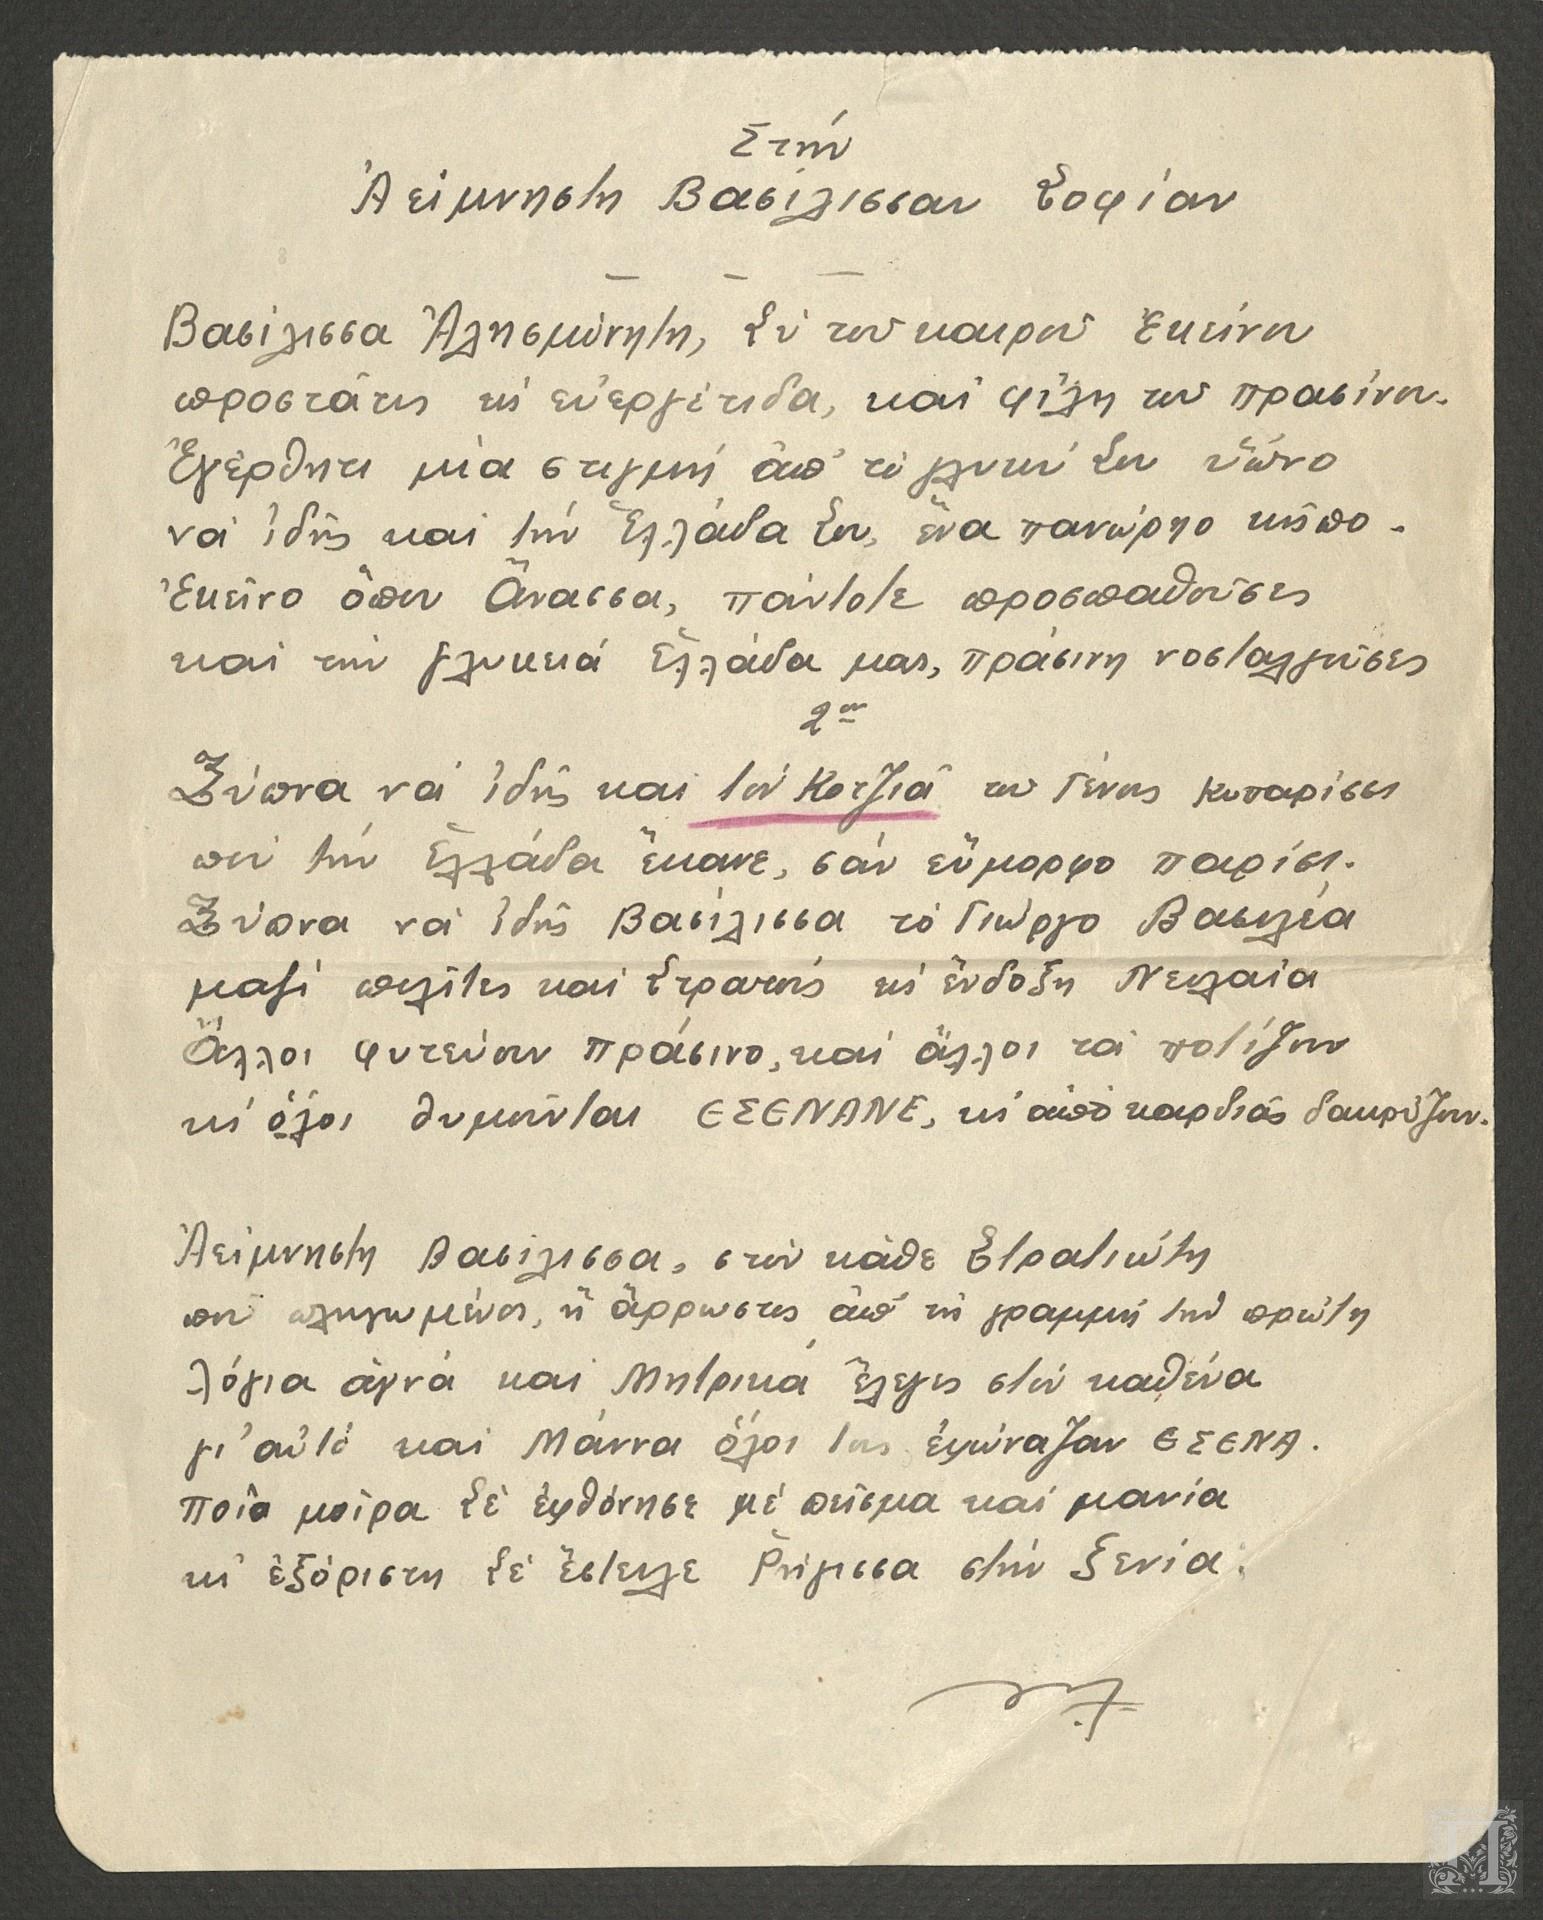 Στήν
Ἀείμνηστη Βασίλισσαν Σοφίαν
Βασίλισσα Ἀλησμόνητη, Σύ τοῦ καιροῦ ἐκείνου
προστάτις κι εὐεργέτιδα, καί φίλη τοῦ πρασίνου.
Ἐγέρθητι μία στιγμή ἀπ' τό γλυκύ Σου ὕπνο
νά ἰδῆς καί τήν Ἑλλάδα Σου, ἕνα πανώρηο κῆπο.
Ἐκεῖνο ὅπου Ἄνασσα, πάντοτε προσπαθοῦσες
καί τήν γλυκειά Ἑλλάδα μας, πράσινη νοσταλγοῦσες
2ον
Ξύπνα νά ἰδῆς καί τόν Κοτζιᾶ τοῦ Γένους κυπαρίσσι
πού τήν Ἑλλάδα ἔκανε, σάν εὔμορφο παρίσι.
Ξύπνα νά ἰδῆς Βασίλισσα τό Γιώργο Βασιλέα
μαζί πολῖτες καί Στρατός κι ἔνδοξη Νεολαία
Ἄλλοι φυτεύουν πράσινο, καί ἄλλοι τά ποτίζουν
κι ὅλοι θυμοῦνται ΕΣΕΝΑΝΕ, κι ἀπό καρδιᾶς δακρύζουν.
Ἀείμνηστη Βασίλισσα, στόν κάθε Στρατιώτη
πού πληγωμένος, ἤ ἄρρωστος ἀπ' τή γραμμή τήν πρώτη
λόγια ἁγνά καί Μητρικά ἔλεγες στόν καθένα
γι' αὐτό καί Μάννα ὅλοι τους ἐφώναζαν ΕΣΕΝΑ.
Ποῖα μοῖρα Σέ ἐφθόνησε μέ πεῖσμα καί μανία
κι ἐξόριστη Σέ ἔστειλε Ρήγισσα στήν ξενία;